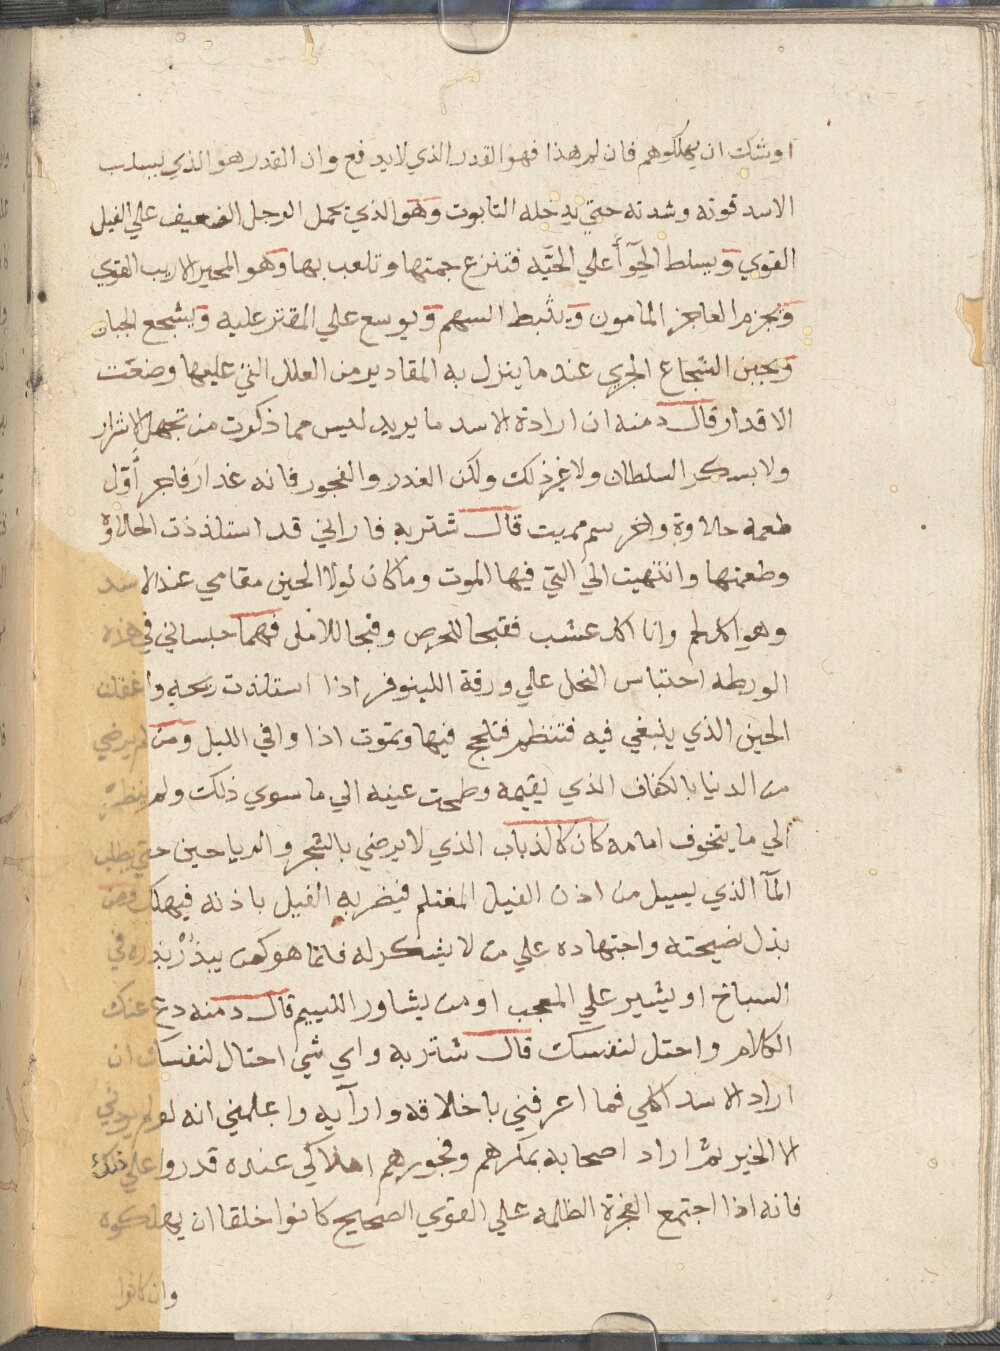 اوشك ان يهلكوهم فان لم هذا فهو القدر الذي لا يدفع وان القدر هو الذي يسلب
الاسد قوته وشدته حتي يدخله التابوت وهو الذي يحمل الرجل الضعيف علي الفيل
القوي ويسلط الحوّآ علي الحيّه فتنزع حمتها وتلعب بها وهو المحير الاريب القوي
ويحزم العاجز المامون ويثبط السهم ويوسع علي المقتر عليه ويشجع الجبان
ويجبن الشجاع الجري عند ما ينزل به المقادير من العلل التي عليها وضعت
الاقدار قال دمنه ان ارادة الاسد ما يريد ليس مما ذكرت من تجهل الاشرار
ولا بسكر السلطان ولا غير ذلك ولكن الغدر والفجور فانه غدار فاجر أوّل
طعمه حلاوة واخر سم مميت قال شتربه فاراني قد استلذذت الحلاوة
وطعمتها وانتهيت الي التي فيها الموت وما كان لولا الحين مقامي عند الاسد
وهو اكل لحم وانا اكل عشب فقبحا للحرص وقبحا للامل فهما حبساني في هذه
الورطه احتباس النحل علي ورقة اللينوفر اذا استلذت ريحه واغفلت
الحين الذي ينبغي فيه فتنظم فتلج فيها وتموت اذا وافي الليل ومن لم يرضي
من الدنيا بالكفاف الذي يقيمه وطمحت عينه الي ما سوي ذلك ولم ينظر
الي ما يتخوف امامه كان كالذباب الذي لا يرضي بالشجر والرياحين حتي يطلب
المآ الذي يسيل من اذن الفيل المغتلم فيضربه الفيل باذنه فيهلك ومن
بذل نصيحته واجتهاده علي من لا يشكر له فانما هو كمن يبذر بذره في
السباخ او يشير علي المعجب او من يشاور اللئيم قال دمنه دع عنك
الكلام واحتل لنفسك قال شتربه واي شي احتال لنفسك ان
اراد الاسد اكلي فما اعرفني باخلاقه وارآيه واعلمني انه لو لم يرد بي
الا الخير ثم اراد اصحابه بمكرهم وفجورهم اهلاكي عنده قدروا علي ذلك
فانه اذا اجتمع الفجرة الظلمه علي القوي الصحيح كانوا خلقا ان يهلكوه
وان كانوا